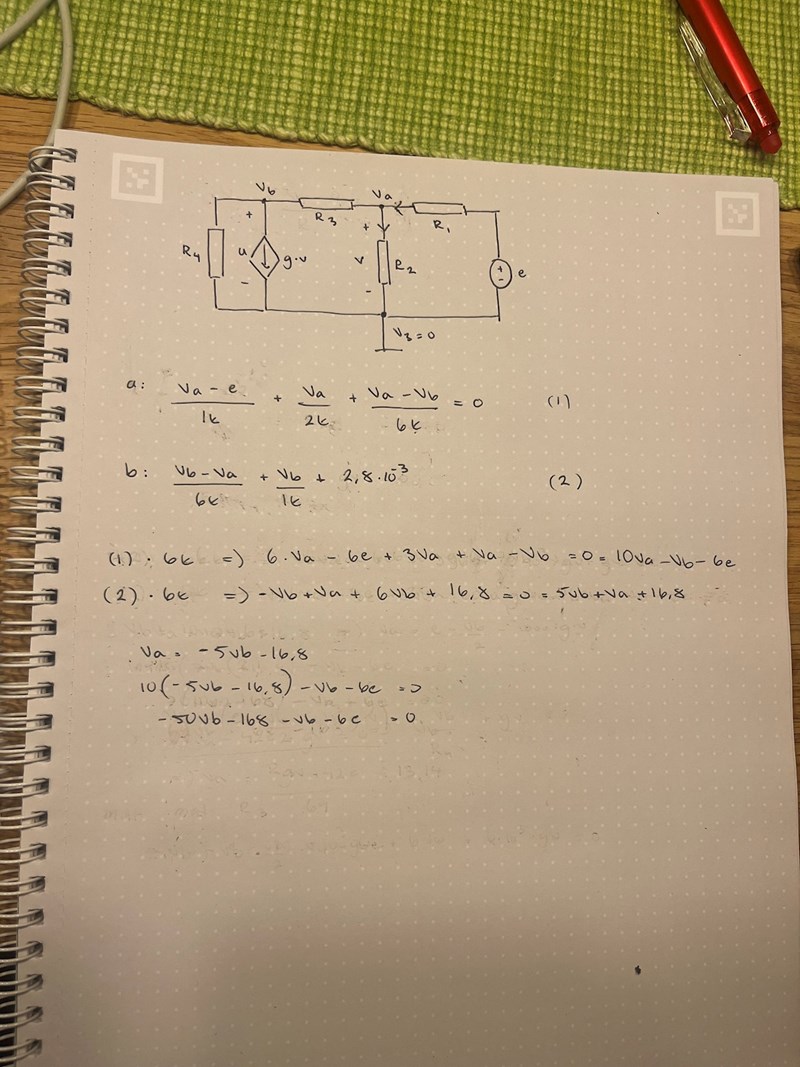 Vb Va
+ R3 + R1
R4 u g·v v R2 + - e
- -
V3 = 0
a: Va - e / 1k + Va / 2k + Va - Vb / 6k = 0 (1)
b: Vb - Va / 6k + Vb / 1k + 2,8·10^-3 (2)
(1) · 6k => 6·Va - 6e + 3Va + Va - Vb = 0 = 10Va - Vb - 6e
(2) · 6k => -Vb + Va + 6Vb + 16,8 = 0 = 5Vb + Va + 16,8
Va = -5Vb - 16,8
10(-5Vb - 16,8) - Vb - 6e = 0
-50Vb - 168 - Vb - 6e = 0